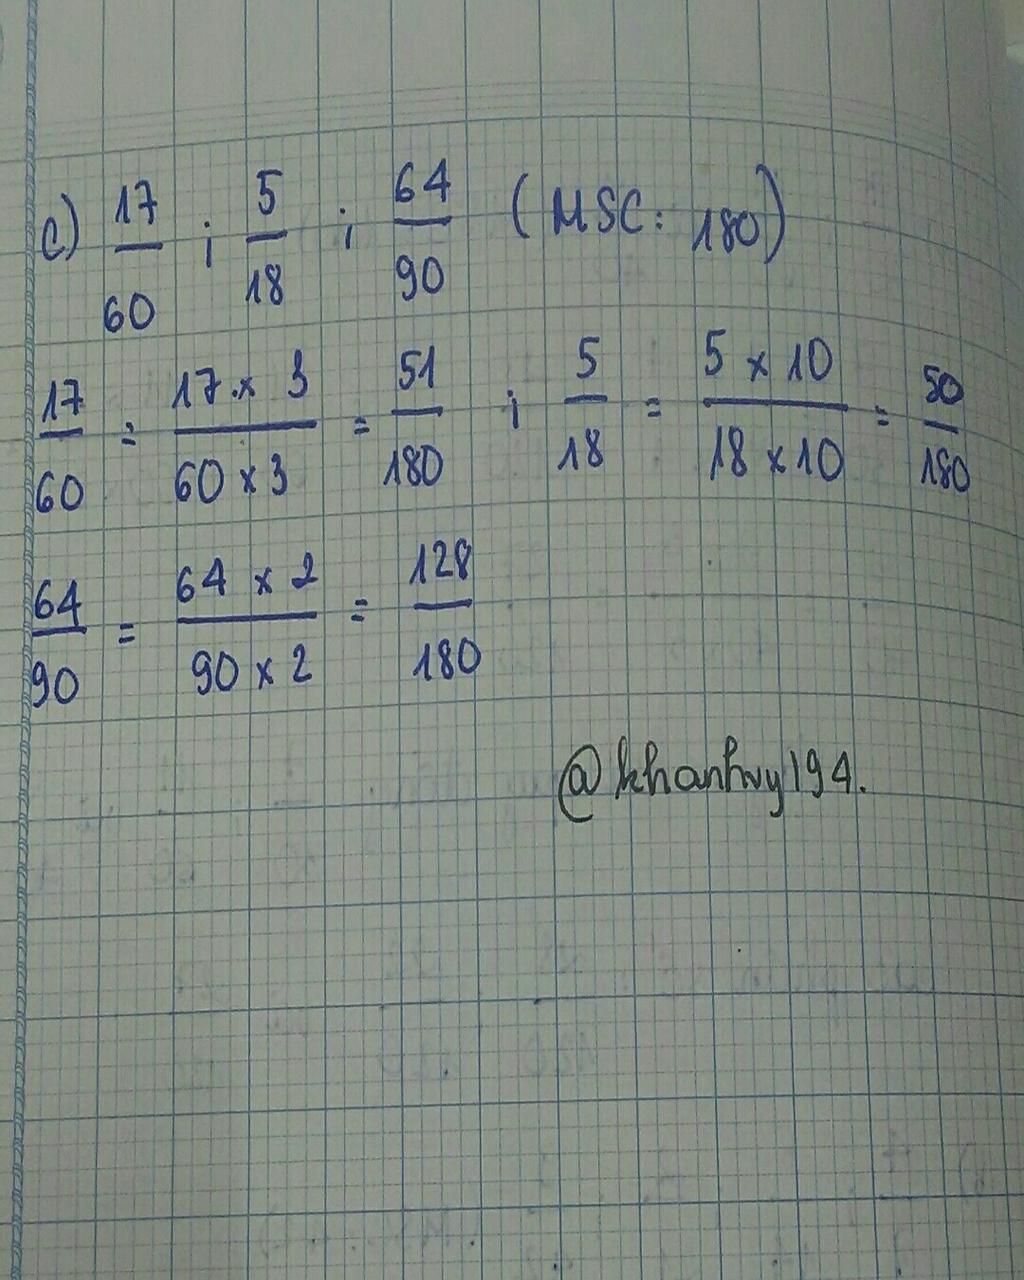 c) 17/60 ; 5/18 ; 64/90 (MSC: 180)
17/60 = 17 x 3/60 x 3 = 51/180 ; 5/18 = 5 x 10/18 x 10 = 50/180
64/90 = 64 x 2/90 x 2 = 128/180
@khanhvy194.